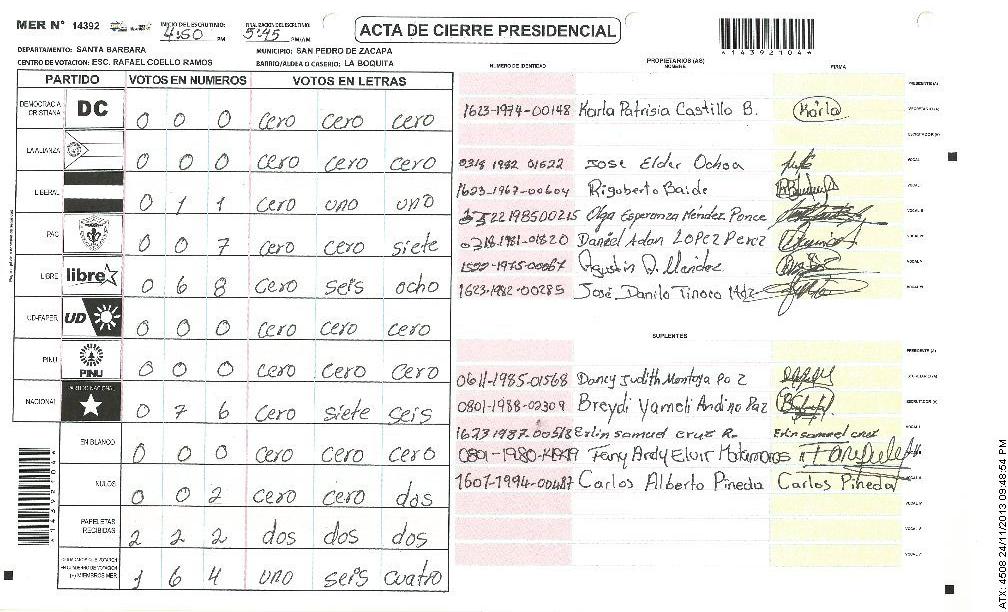 MER N° 14392 INICIO DEL ESCRUTINIO: 4:50 PM FINALIZACION DEL ESCRUTINIO: 5:45 PM/AM ACTA DE CIERRE PRESIDENCIAL
*14392104*
DEPARTAMENTO: SANTA BARBARA MUNICIPIO: SAN PEDRO DE ZACAPA
CENTRO DE VOTACION: ESC. RAFAEL COELLO RAMOS BARRIO/ALDEA O CASERIO: LA BOQUITA
PARTIDO VOTOS EN NUMEROS VOTOS EN LETRAS
DEMOCRACIA CRISTIANA DC 0 0 0 cero cero cero
LA ALIANZA 0 0 0 cero cero cero
LIBERAL 0 1 1 cero uno uno
PAC 0 0 7 cero cero siete
LIBRE libre 0 6 8 cero seis ocho
UD-FAPER UD 0 0 0 cero cero cero
PINU PINU 0 0 0 cero cero cero
NACIONAL PARTIDO NACIONAL 0 7 6 cero siete seis
EN BLANCO 0 0 0 cero cero cero
NULOS 0 0 2 cero cero dos
PAPELETAS RECIBIDAS 2 2 2 dos dos dos
(+) MIEMBROS MER 1 6 4 uno seis cuatro
*14392104*
PROPIETARIOS (AS)
NUMERO DE IDENTIDAD NOMBRE FIRMA
PRESIDENTE (A)
1623-1974-00148 Karla Patrisia Castillo B. Karla SECRETARIO (A)
ESCRUTADOR (A)
0318 1982 01622 Jose Elder Ochoa VOCAL I
1623-1967-00604 Rigoberto Baide
22198500215 Olga Esperanza Méndez Ponce
0318-1981-01820 Daniel Adan LOPEZ Perez
1975-00067 Agustin D. Mendez
1623-1982-00285 José Danilo Tinoco Mdz
SUPLENTES
PRESIDENTE (A)
0611-1985-01568 Dancy Judith Montoya Po z SECRETARIO (A)
0801-1988-02309 Breydi Yameli Andino Paz ESCRUTADOR (A)
1623 1987-00518 Erlin samuel cruz R. Erlin samuel cruz
0801-1980-14949 Fany Andy Elvir Matamoros
1607-1994-00487 Carlos Alberto Pineda Carlos Pineda
ATX: 4508 24/11/2013 09:48:54 PM